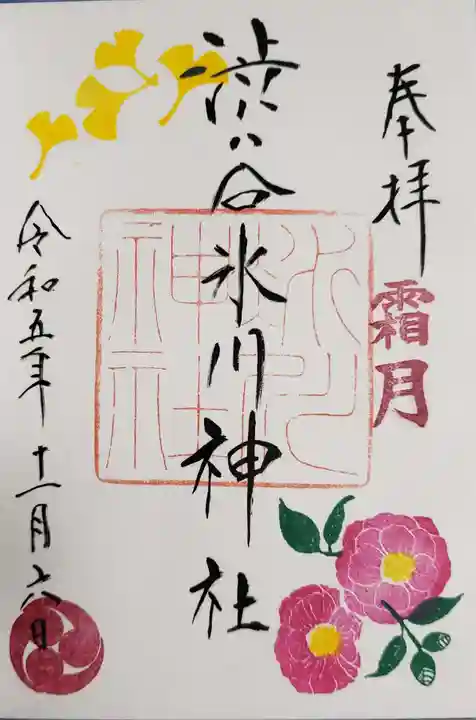 奉拝
霜月
渋谷氷川神社
氷川
神社
令和五年十一月六日